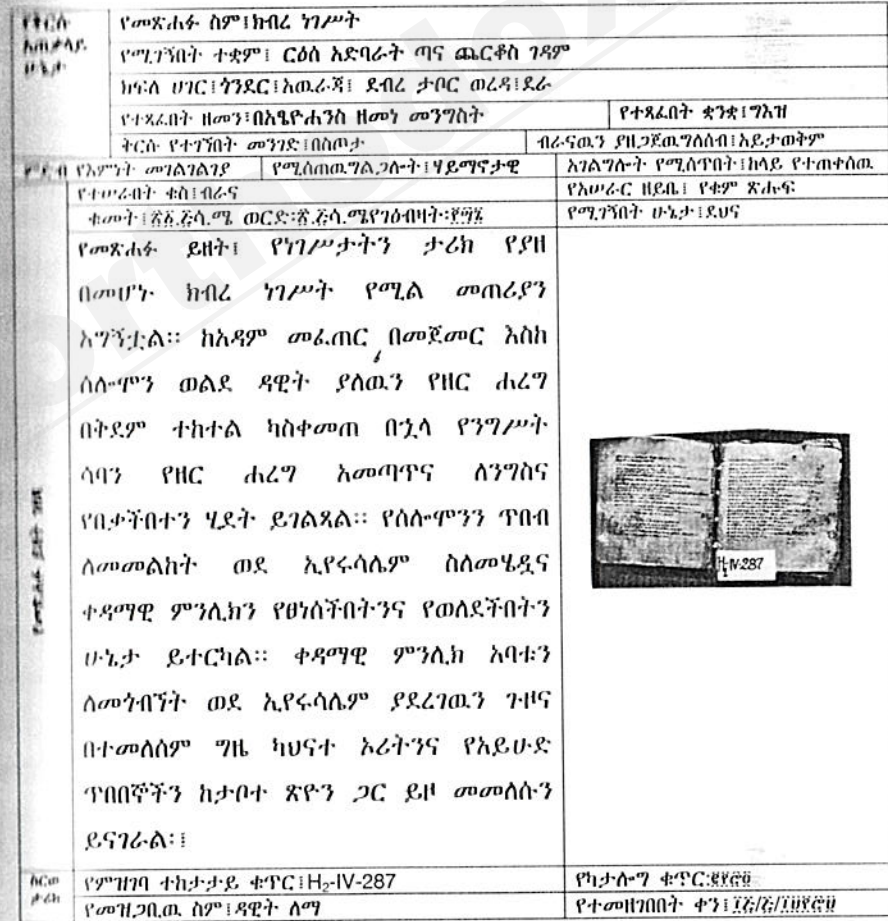 የቅርሱ አጠቃላይ ሁኔታ
የመጽሐፉ ስም፤ክብረ ነገሥት
የሚገኝበት ተቋም፤ ርዕሰ አድባራት ጣና ጨርቆስ ገዳም
ክፍለ ሀገር፤ጎንደር፤አዉራጃ፤ ደብረ ታቦር ወረዳ፤ደራ
የተጻፈበት ዘመን፤በአፄዮሐንስ ዘመነ መንግስት የተጻፈበት ቋንቋ፤ግእዝ
ቅርሱ የተገኘበት መንገድ፤በስጦታ ብራናዉን ያዘጋጀዉግለሰብ፤አይታወቅም
የእምነት መገልገልገያ የሚሰጠዉግልጋሎት፤ሃይማኖታዊ አገልግሎት የሚሰጥበት፤ከላይ የተጠቀሰዉ
የተሠራበት ቁስ፤ብራና የአሠራር ዘይቤ፤ የቁም ጽሑፍ
የሚገኝበት ሁኔታ፤ደህና
የመጽሐፉ ይዘት፤ የነገሥታትን ታሪክ የያዘ
በመሆኑ ክብረ ነገሥት የሚል መጠሪያን
አግኝቷል። ከአዳም መፈጠር በመጀመር እስከ
ሰሎሞን ወልደ ዳዊት ያለዉን የዘር ሐረግ
በቅደም ተከተል ካስቀመጠ በኂላ የንግሥት
ሳባን የዘር ሐረግ አመጣጥና ለንግስና
የበቃችበተን ሂደት ይገልጻል። የሰሎሞንን ጥበብ
ለመመልከት ወደ ኢየሩሳሌም ስለመሄዷና
ቀዳማዊ ምንሊክን የፀነሰችበትንና የወለደችበትን
ሁኔታ ይተርካል። ቀዳማዊ ምንሊክ አባቱን
ለመጎብኘት ወደ ኢየሩሳሌም ያደረገዉን ጉዞና
በተመለሰም ግዜ ካህናተ ኦሪትንና የአይሁድ
ጥበበኞችን ከታቦተ ጽዮን ጋር ይዞ መመለሱን
ይናገራል፡፤
H-IV-287
የምዝገባ ተከታታይ ቁጥር፤H₂-IV-287 የካታሎግ ቁጥር፡
የመዝጋቢዉ ስም፤ዳዊት ለማ የተመዘገበበት ቀን፤